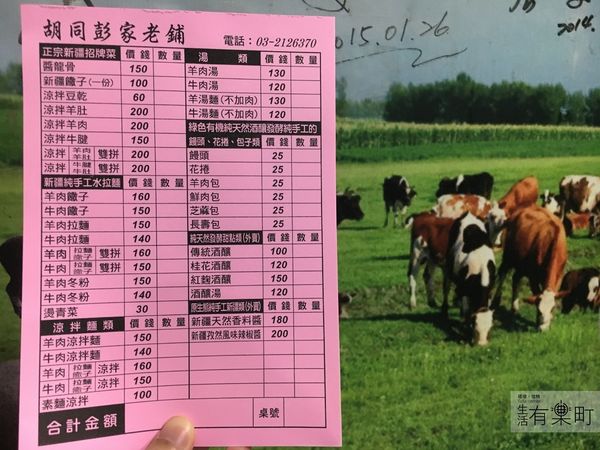 胡同彭家老鋪
電話：03-2126370
正宗新疆招牌菜 價錢 數量
醬龍骨 150
新疆饊子(一份) 100
涼拌豆乾 60
涼拌羊肚 200
涼拌羊肉 200
涼拌牛腱 150
涼拌 羊肉 羊肚 雙拼 200
涼拌 牛腱 牛肚 雙拼 200
新疆純手工水拉麵 價錢 數量
羊肉饊子 160
牛肉饊子 150
羊肉拉麵 150
牛肉拉麵 140
羊肉 拉麵 饊子 雙拼 160
牛肉 拉麵 饊子 雙拼 150
羊肉冬粉 150
牛肉冬粉 140
燙青菜 30
涼拌麵類 價錢 數量
羊肉涼拌麵 150
牛肉涼拌麵 140
羊肉 拉麵 饊子 涼拌 160
牛肉 拉麵 饊子 涼拌 150
素麵涼拌 100
合計金額
湯類 價錢 數量
羊肉湯 130
牛肉湯 120
羊湯麵(不加肉) 130
牛湯麵(不加肉) 120
綠色有機純天然酒釀發酵純手工的
饅頭、花捲、包子類 價錢 數量
饅頭 25
花捲 25
羊肉包 25
鮮肉包 25
芝蔴包 25
長壽包 25
純天然發酵甜點類(外賣) 價錢 數量
傳統酒釀 100
桂花酒釀 120
紅麴酒釀 150
酒釀湯 120
原生態純手工新疆類(外賣) 價錢 數量
新疆天然香料醬 180
新疆孜然風味辣椒醬 200
桌號
015.01.26
2014.
生活有樂町